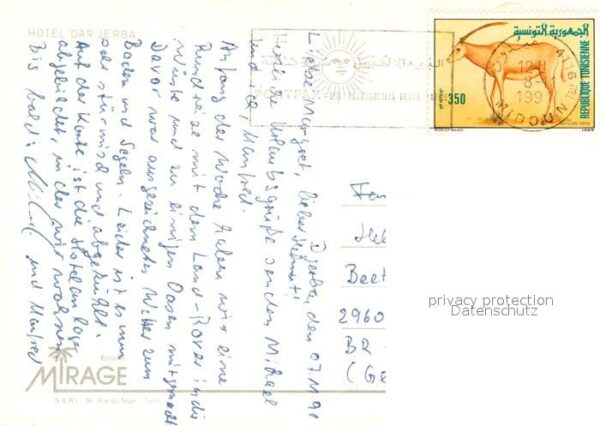 HOTEL DAR JERBA
Djerba, den 07.11.91
Liebe Margret, lieber Helmut!
Herzliche Urlaubsgrüße senden Michael
und Manfred.
Anfang der Woche haben wir eine
Rundreise mit dem Land-Rover in die
Wüste und zu einigen Oasen mitgemacht
Davor war ausgezeichnetes Wetter zum
Baden und Segeln. Leider ist es nun
sehr stürmisch und abgekühlt.
Auf der Karte ist die Hotelanlage
abgebildet, in der wir wohnen
Bis bald
und Manfred
MIRAGE
الجمهورية التونسية
350
REPUBLIQUE TUNISIENNE
MIDOUN
Beet
2960
privacy protection
Datenschutz